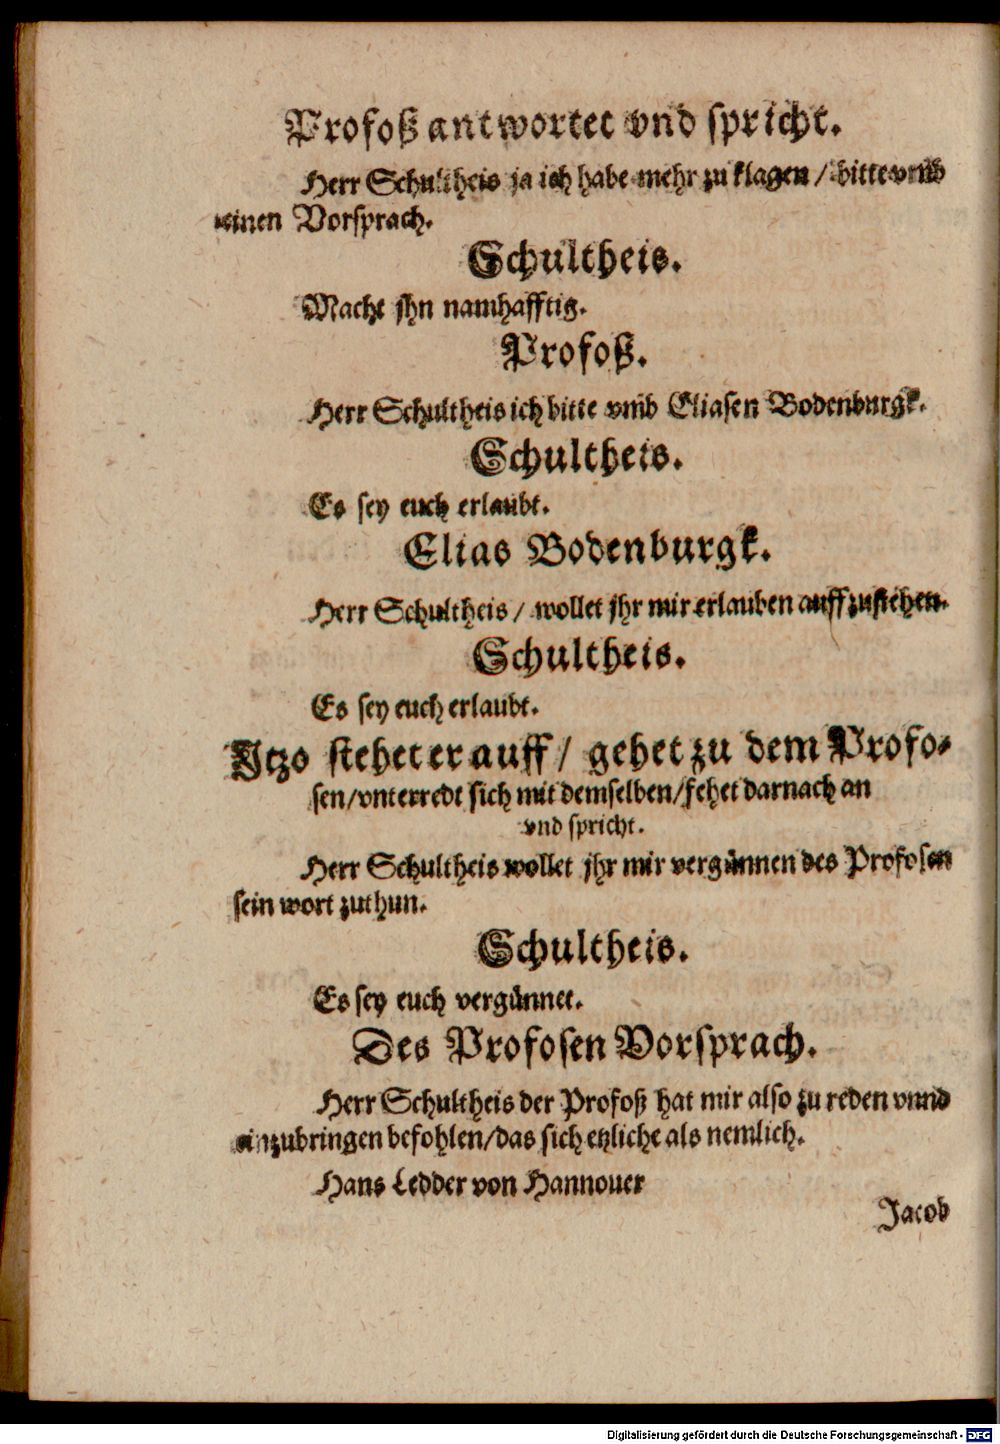 Profoß antwortet vnd spricht.
Herr Schultheis ja ich habe mehr zu klagen / bitte vmb
einen Vorsprach.
Schultheis.
Macht jhn namhafftig.
Profoß.
Herr Schultheis ich bitte vmb Eliasen Bodenburgk.
Schultheis.
Es sey euch erlaubt.
Elias Bodenburgk.
Herr Schultheis / wollet jhr mir erlauben auff zustehen.
Schultheis.
Es sey euch erlaubt.
Jtzo stehet er auff / gehet zu dem Profo-
sen/vnterredt sich mit demselben/fehet darnach an
vnd spricht.
Herr Schultheis wollet jhr mir vergünnen des Profosen
sein wort zuthun.
Schultheis.
Es sey euch vergünnet.
Des Profosen Vorsprach.
Herr Schultheis der Profoß hat mir also zu reden vnnd
einzubringen befohlen/das sich etzliche als nemlich.
Hans Ledder von Hannouer
Jacob
Digitalisierung gefördert durch die Deutsche Forschungsgemeinschaft - DFG